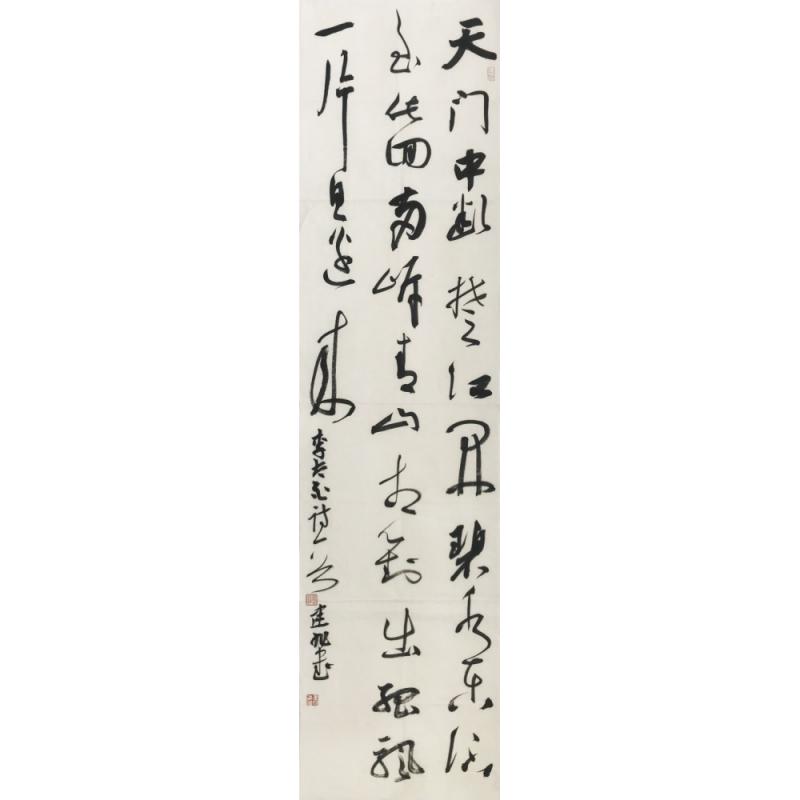 天门中断楚江开碧水东流
至此回两岸青山相对出孤帆
一片日边来
李太白诗一首